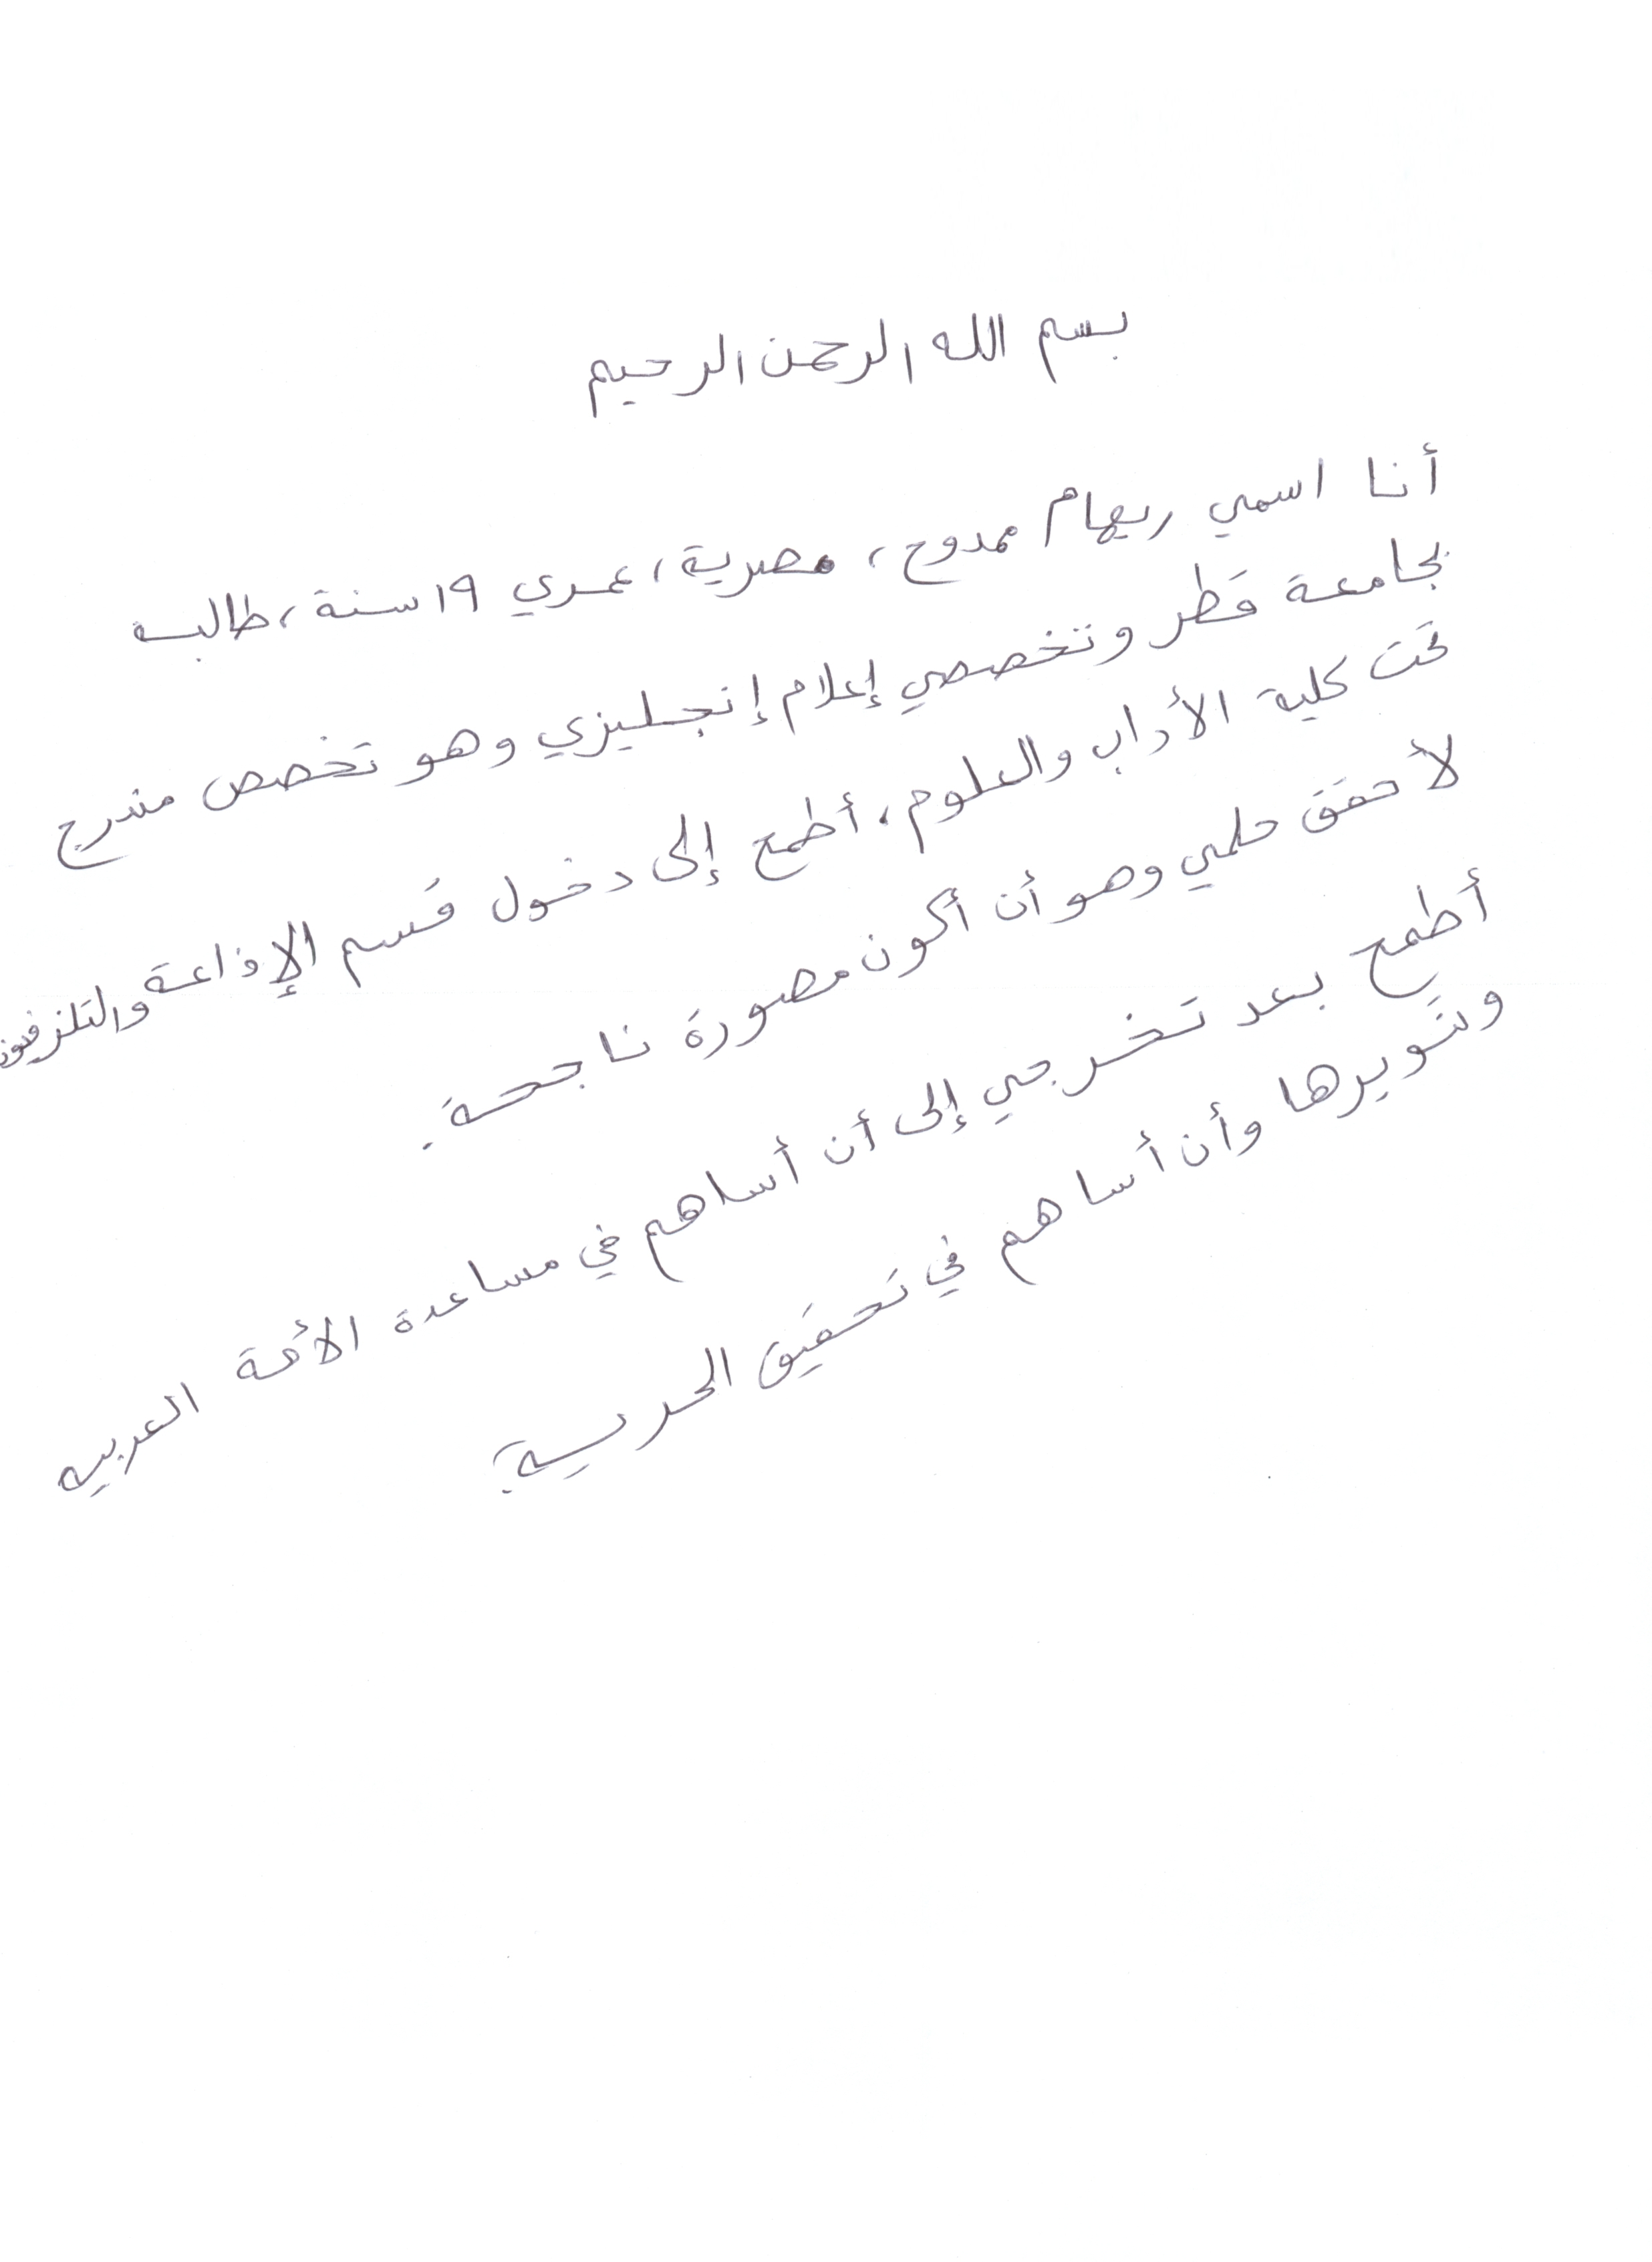 بسم الله الرحمن الرحيم
أنا اسمي ريهام ممدوح، مصرية، عمري ١٩ سنة، طالبه
بجامعة قطر وتخصصي إعلام إنجليزي وهو تخصص مندرج
تحت كلية الأداب والعلوم. أطمح إلى دخول قسم الإذاعة والتلزفيون
لأحقق حلمي وهو أن أكون مصورة ناجحة.
أطمح بعد تخرجي إلى أن أساهم في مساعدة الأمة العربيه
وتنويرها وأن أساهم في تحقيق الحرية.